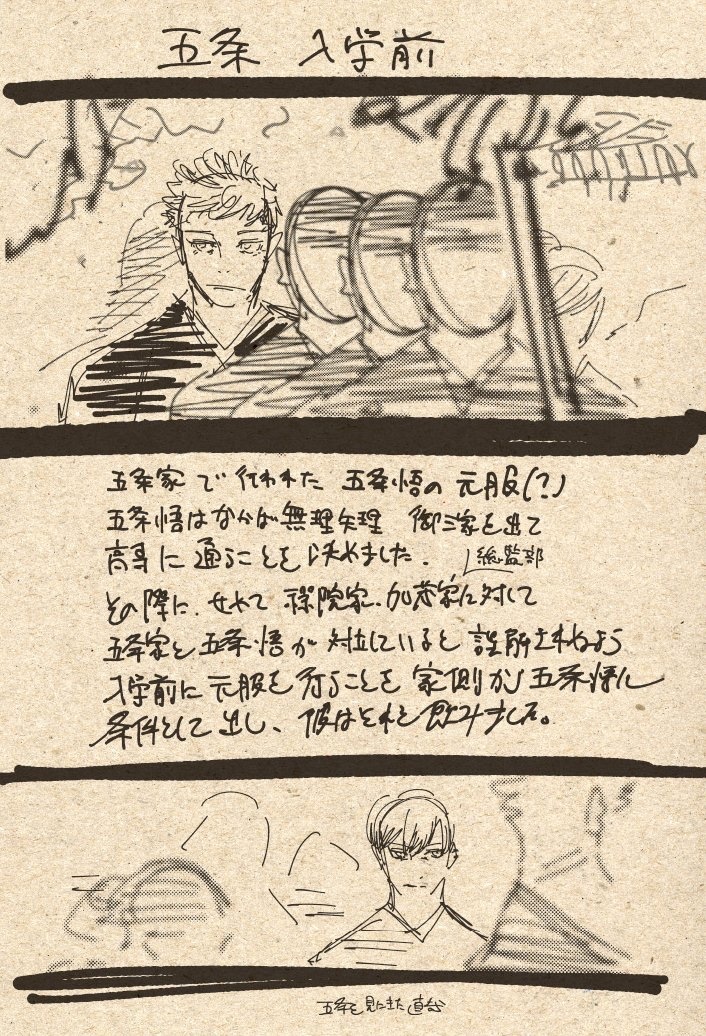 五条 入学前
五条家で行われた 五条悟の元服(?)
五条悟はなかば無理矢理 御三家を出て
高専に通うことを決めました.
総監部
その際に、せめて 禪院家、加茂家に対して
五条家と五条悟が対立していると誤解されぬよう
入学前に元服を行うことを家側が五条悟に
条件として出し、彼はそれを飲みました。
五条を見にきた直哉